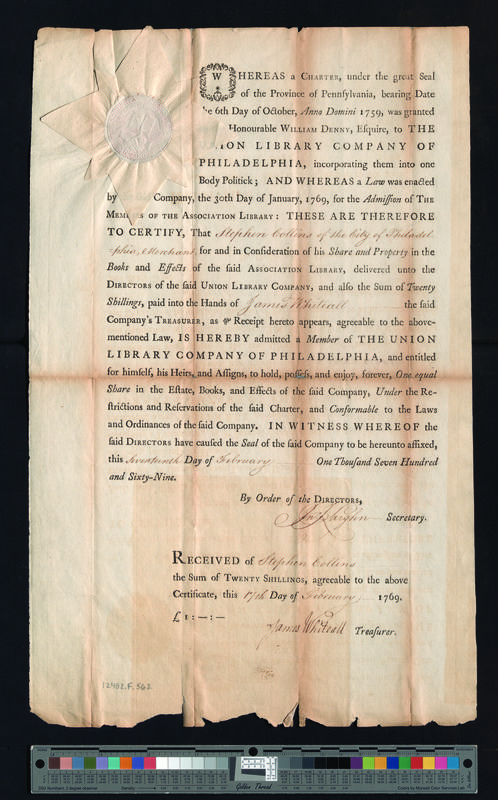 WHEREAS a CHARTER, under the great Seal
of the Province of Pennſylvania, bearing Date
he 6th Day of October, Anno Domini 1759, was granted
Honourable WILLIAM DENNY, Eſquire, to THE
UNION LIBRARY COMPANY OF
PHILADELPHIA, incorporating them into one
Body Politick; AND WHEREAS a Law was enacted
by Company, the 30th Day of January, 1769, for the Admiſſion of THE
MEMBERS OF THE ASSOCIATION LIBRARY: THESE ARE THEREFORE
TO CERTIFY, That Stephen Collins of the City of Philadel
phia, Merchant, for and in Conſideration of his Share and Property in the
Books and Effects of the ſaid ASSOCIATION LIBRARY, delivered unto the
DIRECTORS of the ſaid UNION LIBRARY COMPANY, and alſo the Sum of Twenty
Shillings, paid into the Hands of James Whiteall the ſaid
Company's TREASURER, as Receipt hereto appears, agreeable to the above-
mentioned Law, IS HEREBY admitted a Member of THE UNION
LIBRARY COMPANY OF PHILADELPHIA, and entitled
for himſelf, his Heirs, and Aſſigns, to hold, poſſeſs, and enjoy, forever, One equal
Share in the Eſtate, Books, and Effects of the ſaid Company, Under the Re-
ſtrictions and Reſervations of the ſaid Charter, and Conformable to the Laws
and Ordinances of the ſaid Company. IN WITNESS WHEREOF the
ſaid DIRECTORS have cauſed the Seal of the ſaid Company to be hereunto affixed,
this Seventeenth Day of February One Thouſand Seven Hundred
and Sixty-Nine.
By Order of the DIRECTORS,
Vaughn Secretary.
RECEIVED of Stephen Collins
the Sum of TWENTY SHILLINGS, agreeable to the above
Certificate, this 17th Day of February 1769.
£ 1:—:—
James Whiteall Treaſurer.
12402.F.562
Golden Thread